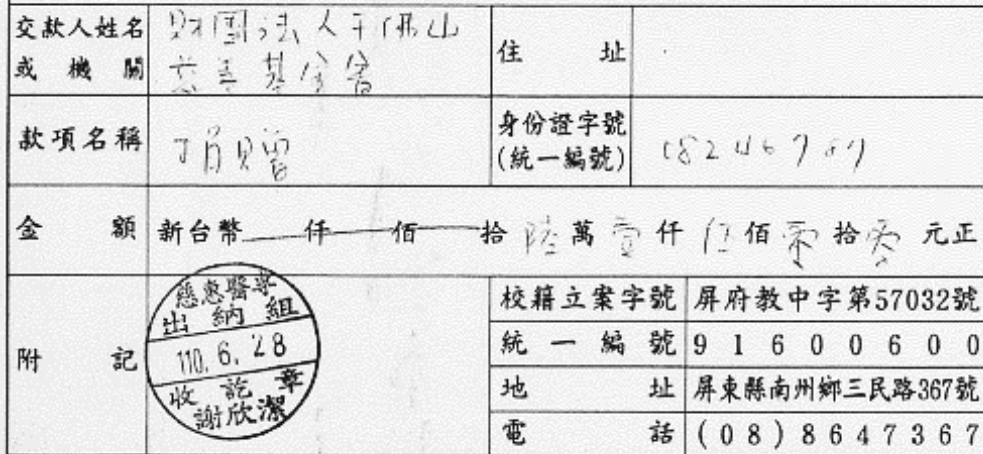 交款人姓名 財團法人千佛山 住 址
或 機 關 慈善基金會
款項名稱 捐贈 身份證字號
(統一編號) 18246787
金 額 新台幣 仟 佰 拾 陸 萬 壹 仟 伍 佰 零 拾 零 元正
慈惠醫專
出納組
110. 6. 28
收訖章
謝欣潔
附 記
校籍立案字號 屏府教中字第57032號
統 一 編 號 9 1 6 0 0 6 0 0
地 址 屏東縣南州鄉三民路367號
電 話 (08)8647367